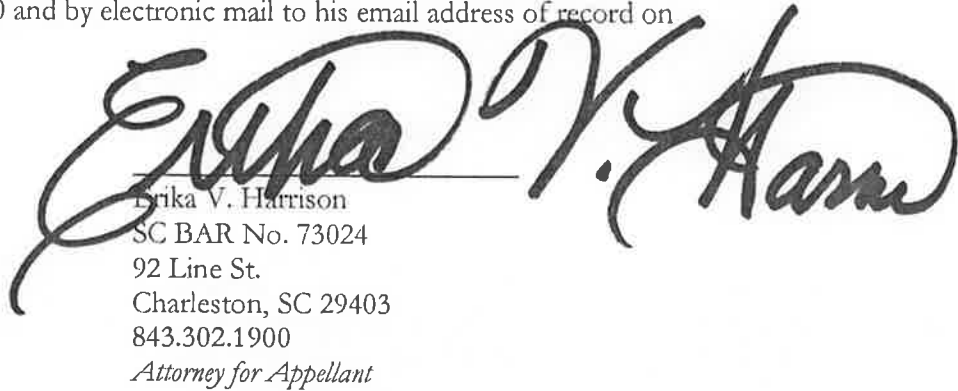 0 and by electronic mail to his email address of record on
Erika V. Harris
Erika V. Harrison
SC BAR No. 73024
92 Line St.
Charleston, SC 29403
843.302.1900
Attorney for Appellant